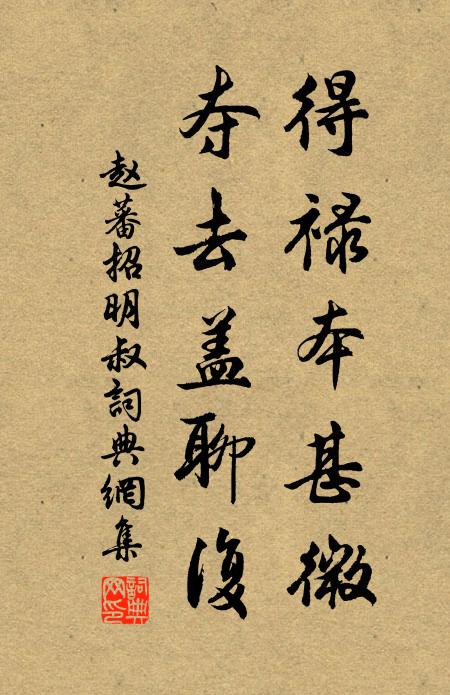 得禄本甚微
夺去盖聊復
赵蕃招明叔詞典網集
詞典网印